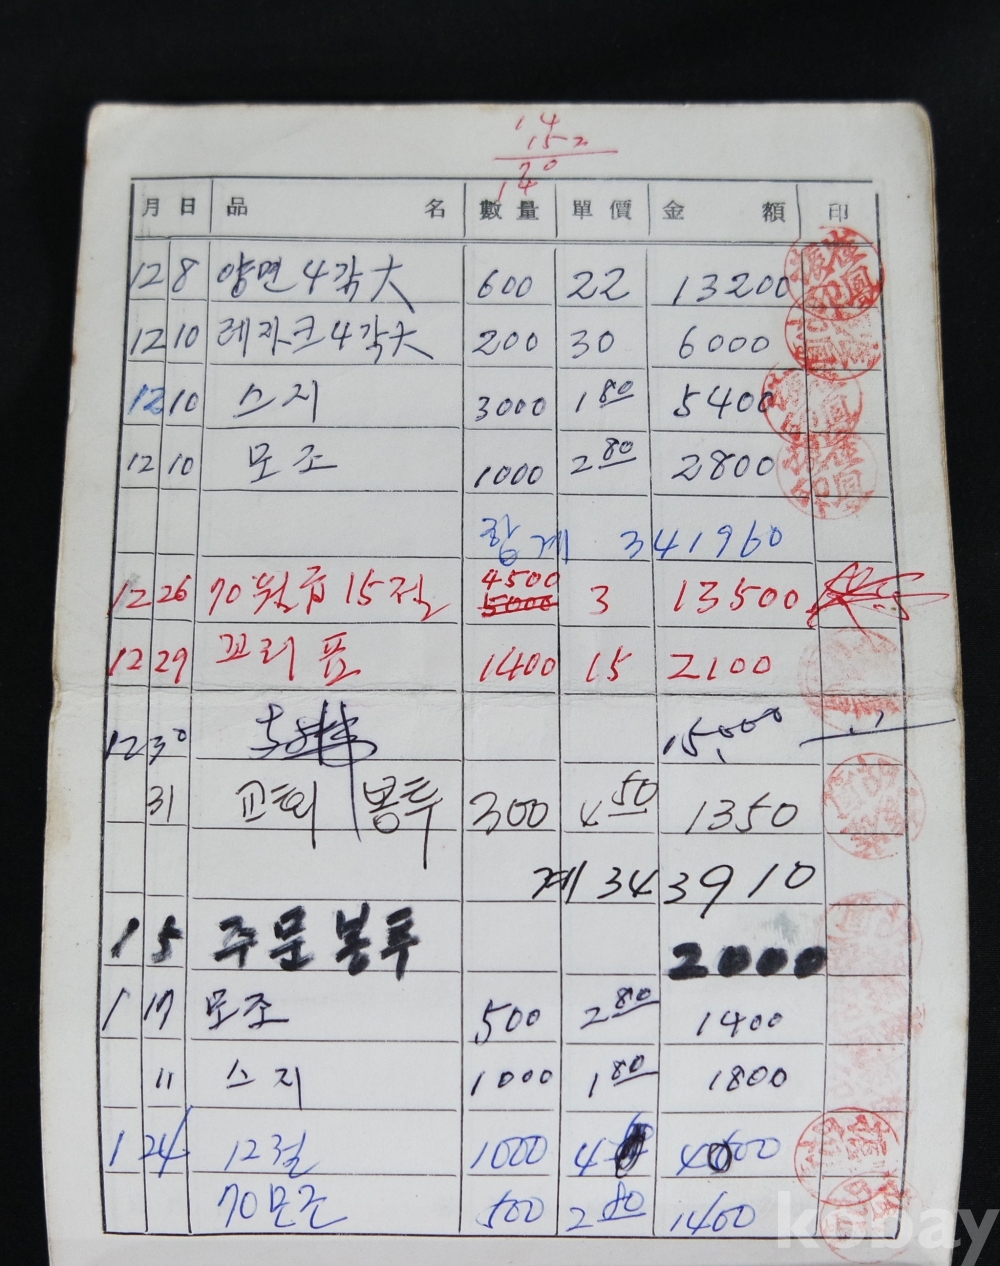 14
152
20
14
月 日 品 名 數量 單價 金 額 印
12 8 양면4각大 600 22 13200
12 10 레자크4각大 200 30 6000
12 10 스지 3000 1 80 5400
12 10 모조 1000 2 80 2800
합계 341960
12 26 70 15절 4500 5000 3 13500
12 29 꼬리표 1400 15 2100
12 30 15,000
31 교회 봉투 300 4 50 1350
계 343910
1 5 주문봉투 2000
1 17 모조 500 2 80 1400
11 스지 1000 1 80 1800
1 24 12절 1000 4
70모조 500 2 80 1400
kobay